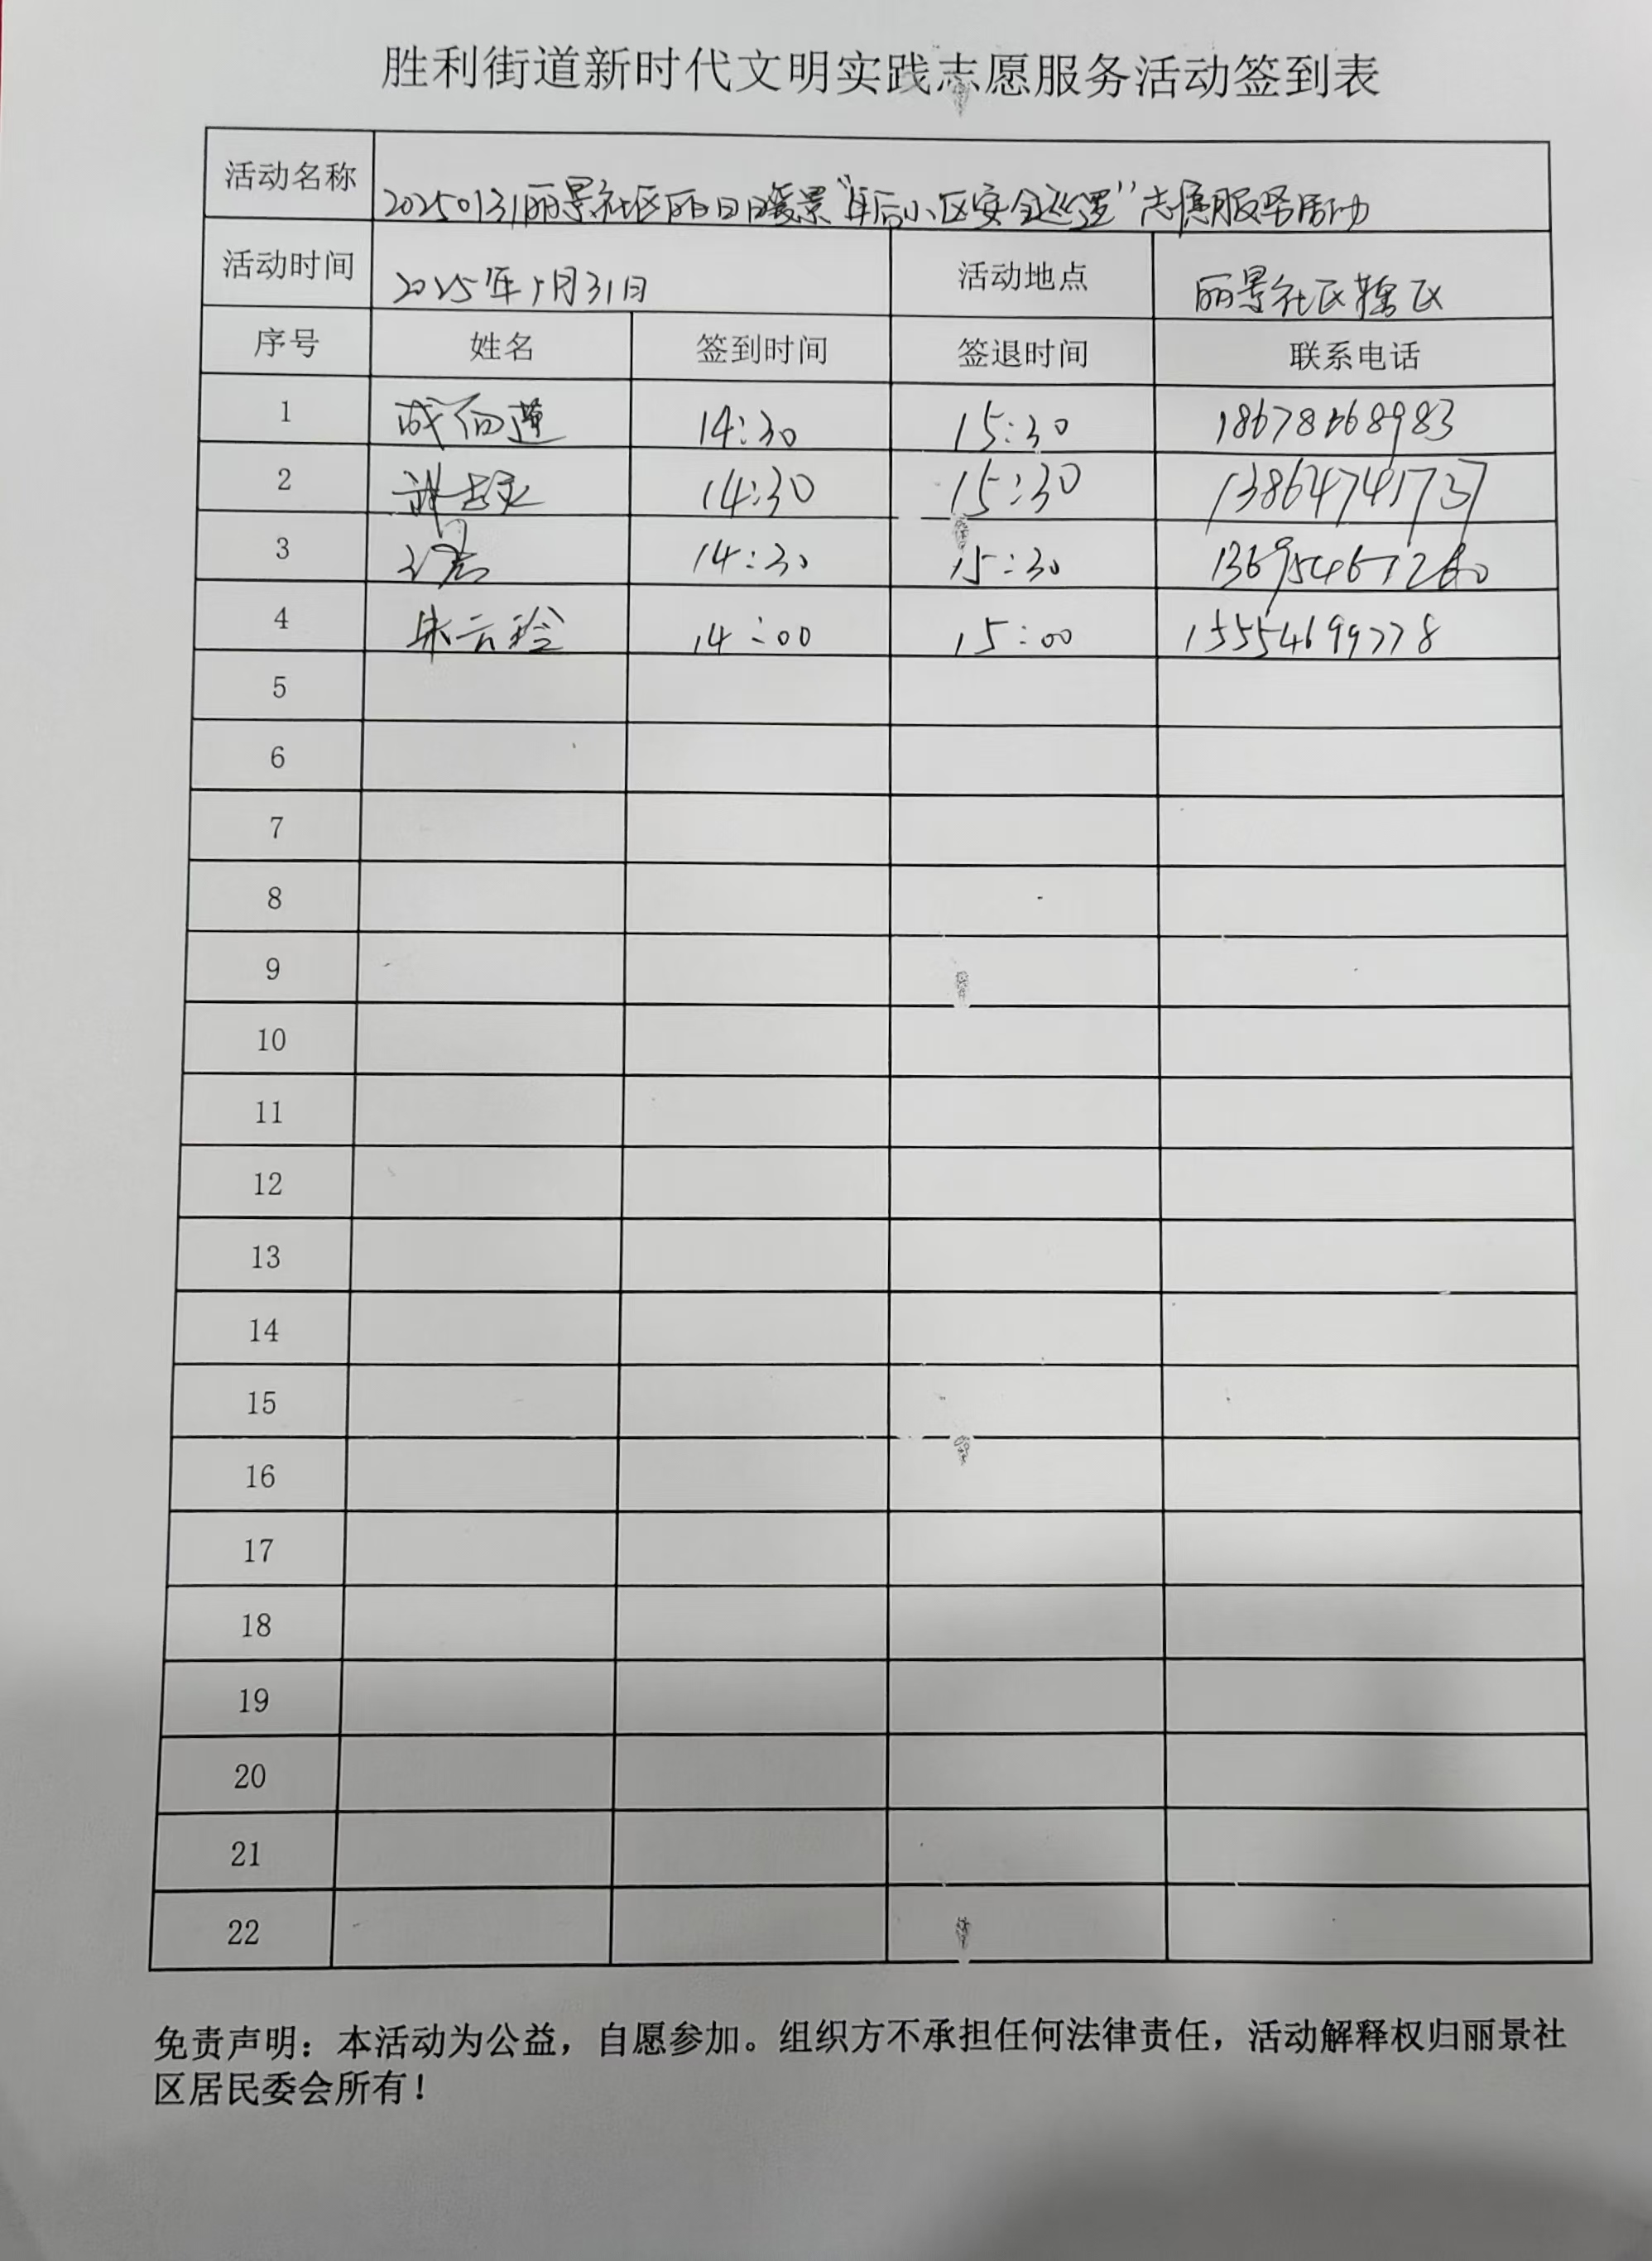 胜利街道新时代文明实践志愿服务活动签到表
活动名称 20250131丽景社区丽日日暖景“年后小区安全巡逻”志愿服务活动
活动时间 2025年1月31日 活动地点 丽景社区辖区
序号 姓名 签到时间 签退时间 联系电话
1 14:30 15:30 18678668983
2 14:30 15:30 13864741737
3 14:30 15:30
4 朱云玲 14:00 15:00 15554699778
5
6
7
8
9
10
11
12
13
14
15
16
17
18
19
20
21
22
免责声明：本活动为公益，自愿参加。组织方不承担任何法律责任，活动解释权归丽景社
区居民委会所有！